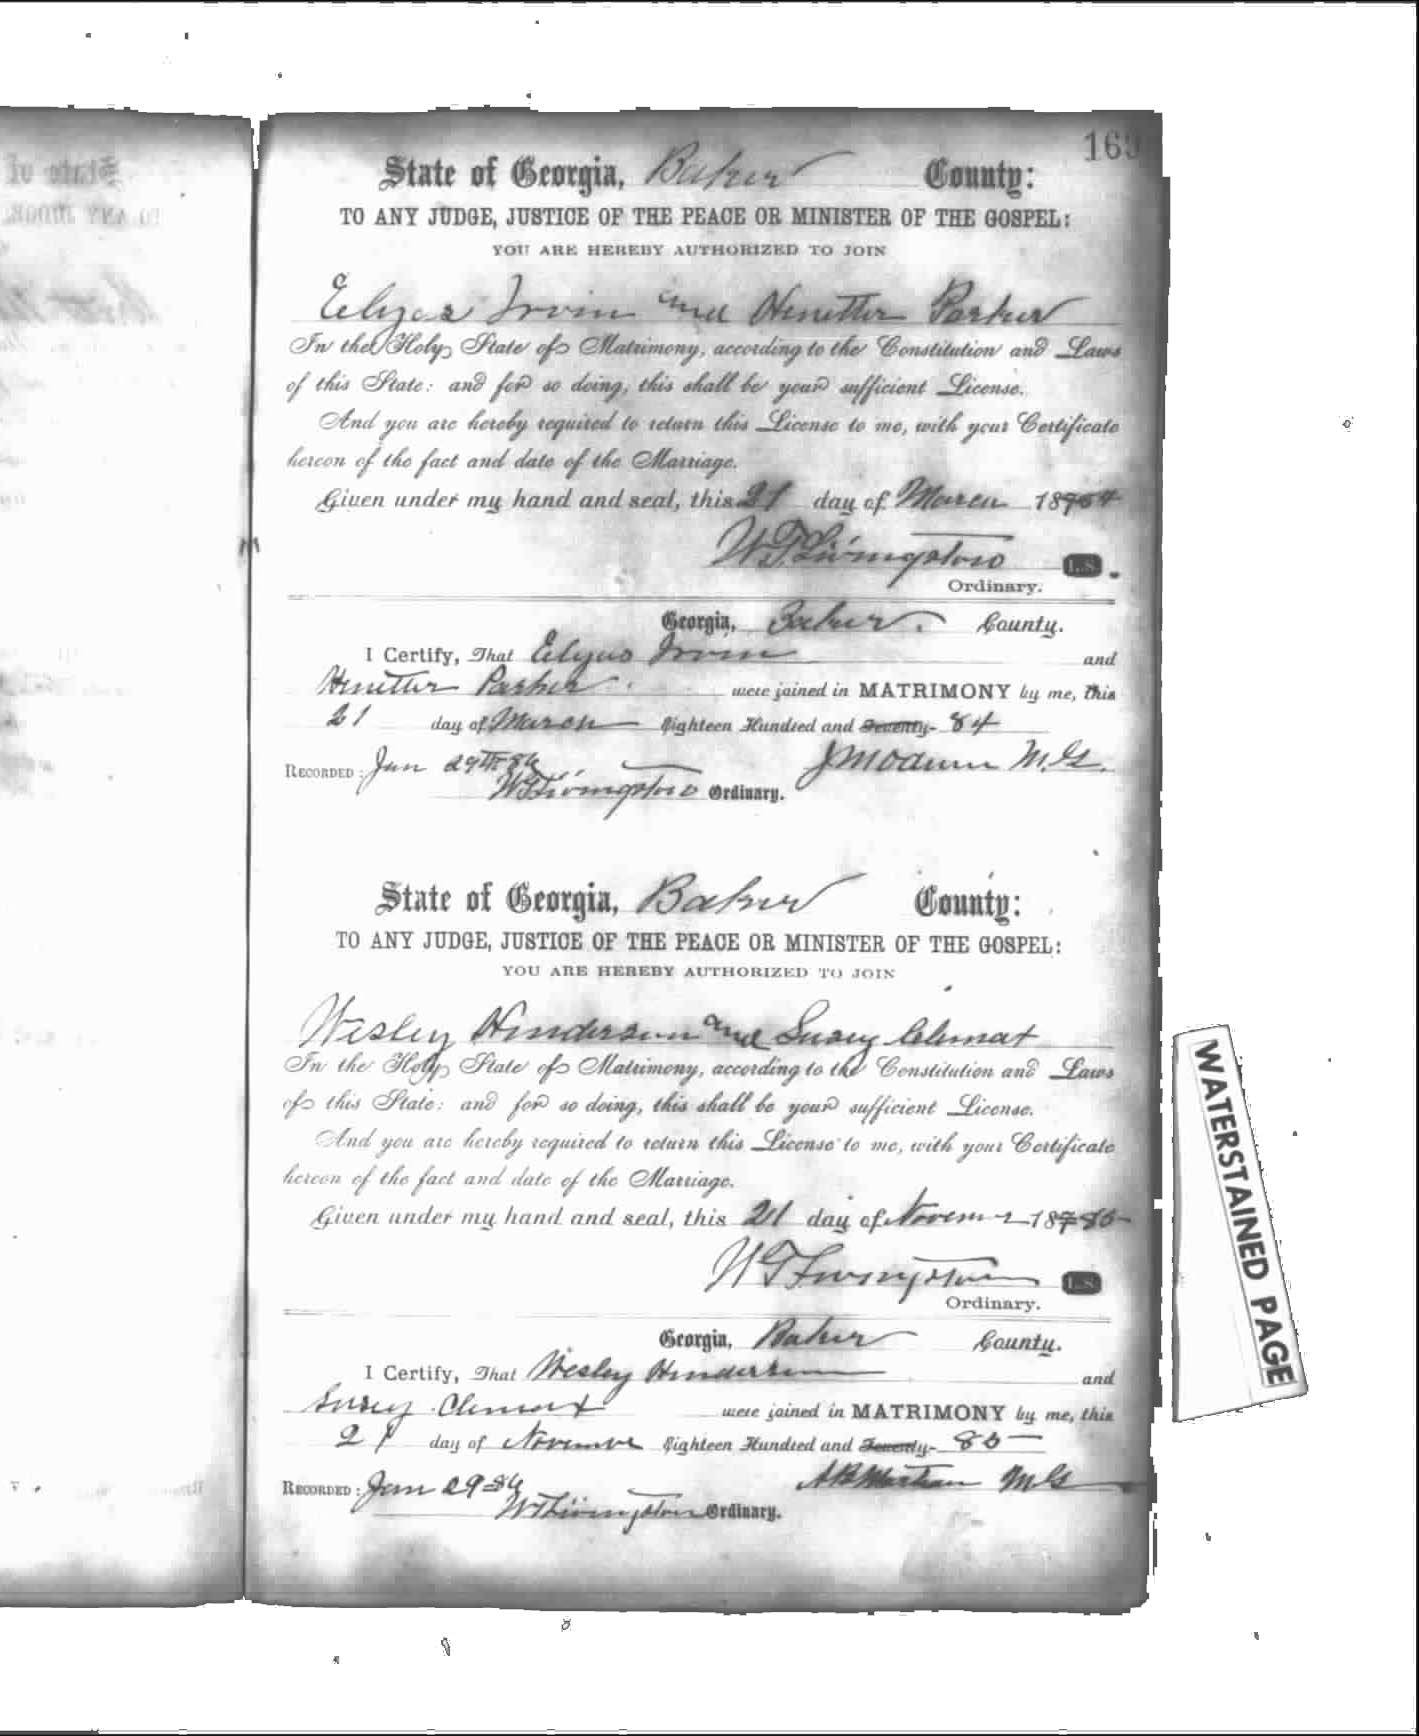 State of Georgia, Baker County:
TO ANY JUDGE, JUSTICE OF THE PEACE OR MINISTER OF THE GOSPEL:
YOU ARE HEREBY AUTHORIZED TO JOIN
Elyas Irvin and Henitter Parker
In the Holy State of Matrimony, according to the Constitution and Laws
of this State: and for so doing, this shall be your sufficient License.
And you are hereby required to return this License to me, with your Certificate
hereon of the fact and date of the Marriage.
Given under my hand and seal, this 21 day of March 18 84
W T Livingston L.S.
Ordinary.
Georgia, Baker County.
I Certify, That Elyas Irvin and
Henitter Parker were joined in MATRIMONY by me, this
21 day of March Eighteen Hundred and Seventy- 84
RECORDED: Jan 29th 86 J M Odum M.G.
W T Livingston Ordinary.
State of Georgia, Baker County:
TO ANY JUDGE, JUSTICE OF THE PEACE OR MINISTER OF THE GOSPEL:
YOU ARE HEREBY AUTHORIZED TO JOIN
Wesley Henderson and Susey Clemat
In the Holy State of Matrimony, according to the Constitution and Laws
of this State: and for so doing, this shall be your sufficient License.
And you are hereby required to return this License to me, with your Certificate
hereon of the fact and date of the Marriage.
Given under my hand and seal, this 21 day of November 187 85
W T Livingston L.S.
Ordinary.
Georgia, Baker County.
I Certify, That Wesley Henderson and
Susey Clemat were joined in MATRIMONY by me, this
21 day of November Eighteen Hundred and Seventy- 85
RECORDED: Jan 29 86 M G
W T Livingston Ordinary.
WATERSTAINED PAGE